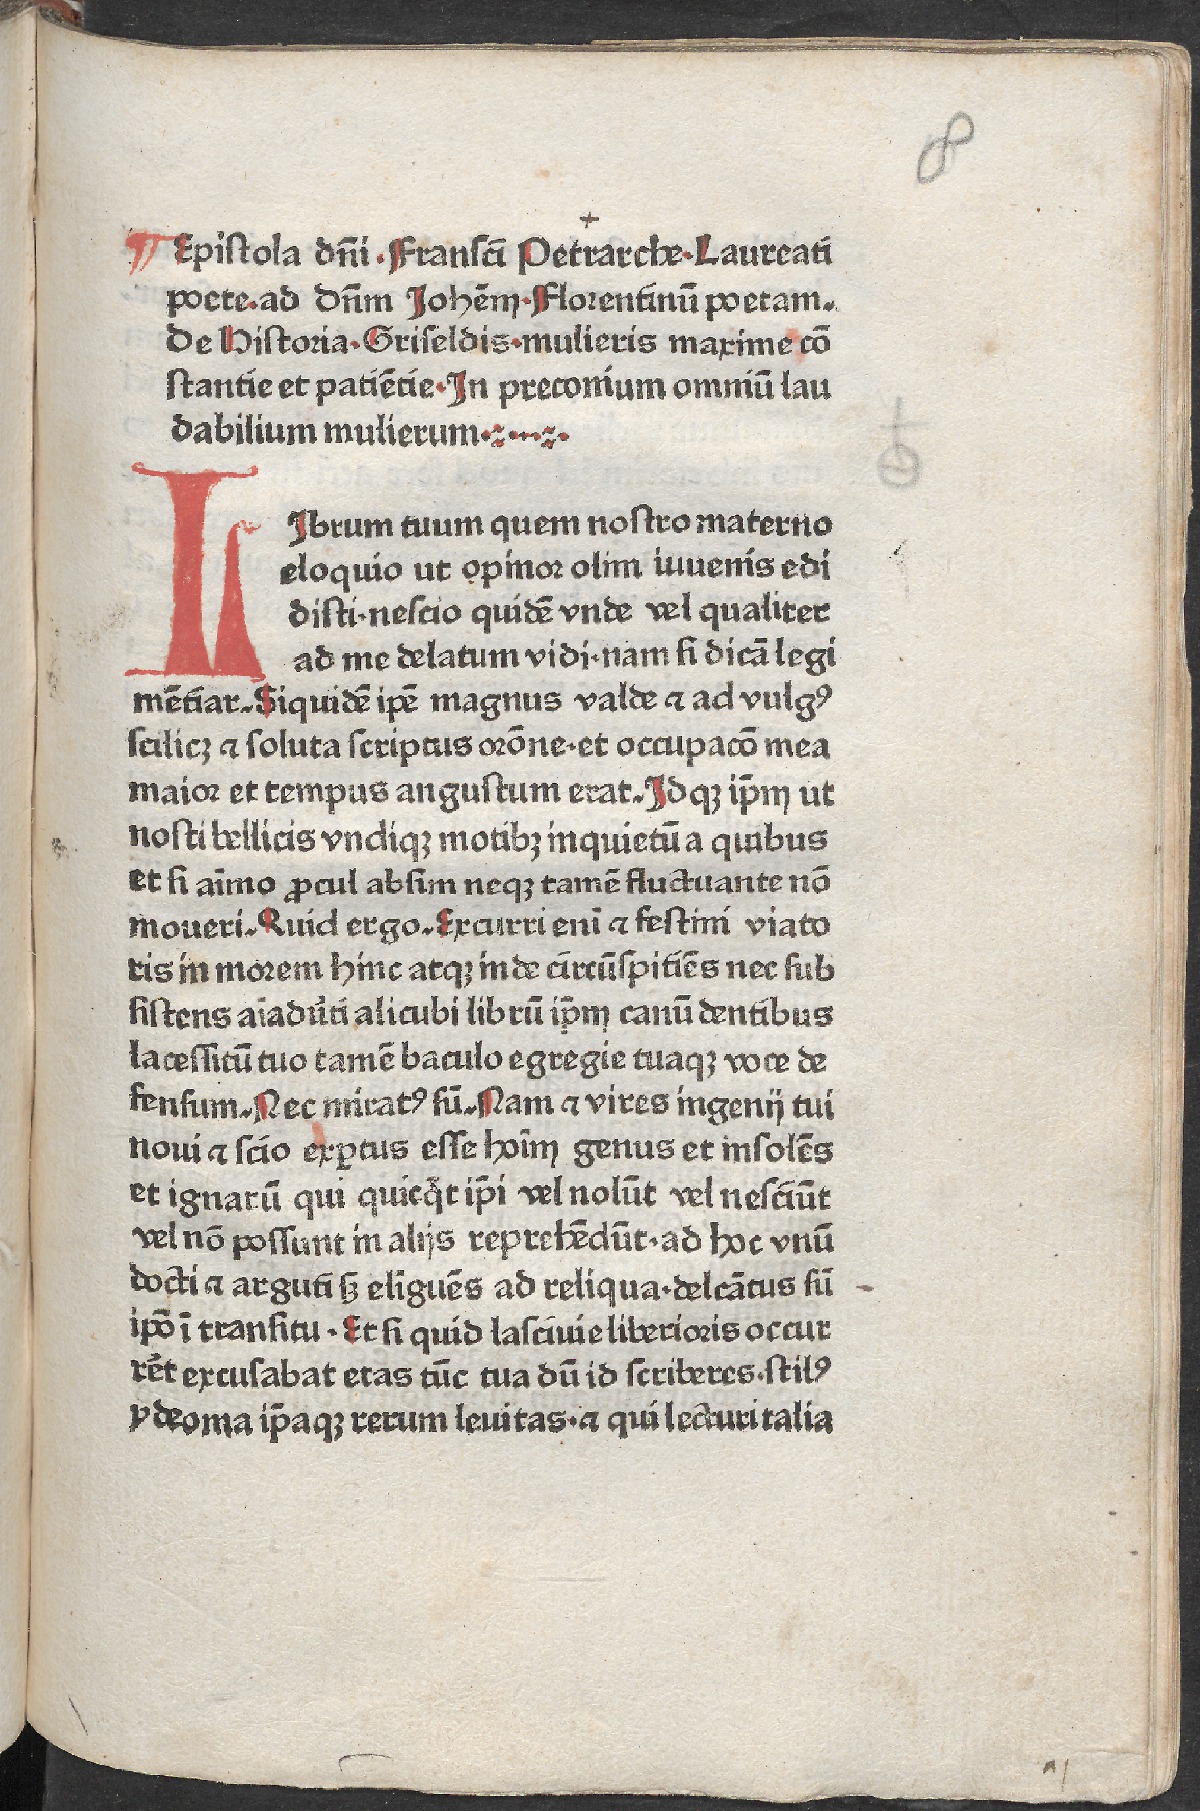 8
¶ Epistola dñi · Franscī Petrarche · Laureati
poete · ad dñm Johēm · Florentinū poetam.
De Historia · Griseldis · mulieris maxime cō
stantie et patiētie · In preconium omniū lau
dabilium mulierum
LIbrum tuum quem nostro materno
eloquio ut opinor olim iuuenis edi
disti · nescio quidē vnde vel qualiter
ad me delatum vidi · nam si dicā legi
mētiar. Siquidē ipē magnus valde ⁊ ad vulgꝰ
scilicꝫ ⁊ soluta scriptus orōne · et occupacō mea
maior et tempus angustum erat. Idqꝫ ip̄m ut
nosti bellicis vndiqꝫ motibꝫ inquietū a quibus
et si aīmo ꝓcul absim neqꝫ tamē fluctuante nō
moueri. Quid ergo. Excurri enī ⁊ festini viato
ris in morem hinc atqꝫ inde circūspitiēs nec sub
sistens aīaduti alicubi librū ip̄m canū dentibus
lacessitū tuo tamē baculo egregie tuaqꝫ voce de
fensum. Nec miratꝰ sū. Nam ⁊ vires ingenij tui
noui ⁊ scio exꝑtus esse hoīm genus et insolēs
et ignarū qui quicq̄t ip̄i vel nolūt vel nesciūt
vel nō possunt in alijs reprehēdūt · ad hoc vnū
docti ⁊ arguti sꝫ elīguēs ad reliqua · delcātus sū
ip̄o ī transitu · Et si quid lasciuie liberioris occur
rēt excusabat etas tūc tua dū id scriberes · stilꝰ
ydeoma ip̄aqꝫ rerum leuitas · ⁊ qui lecturi talia